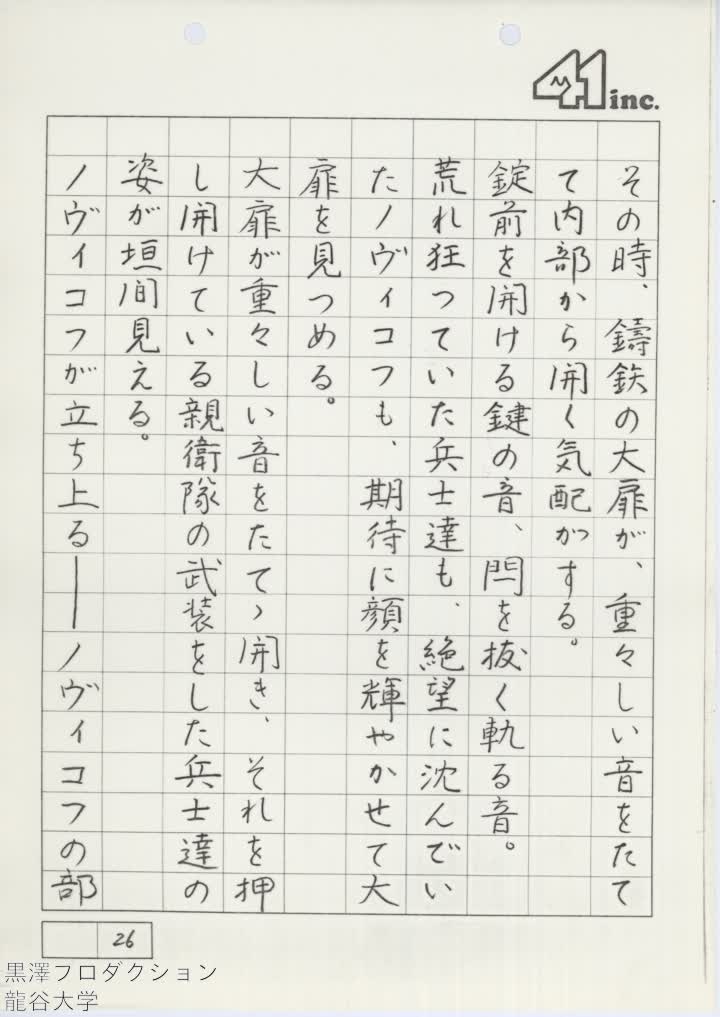 41 inc.
その時、鋳鉄の大扉が、重々しい音をたて
て内部から開く気配がする。
錠前を開ける鍵の音、閂を抜く軋る音。
荒れ狂っていた兵士達も、絶望に沈んでい
たノヴィコフも、期待に顔を輝やかせて大
扉を見つめる。
大扉が重々しい音をたてゝ開き、それを押
し開けている親衛隊の武装をした兵士達の
姿が垣間見える。
ノヴィコフが立ち上る――ノヴィコフの部
26
黒澤プロダクション
龍谷大学